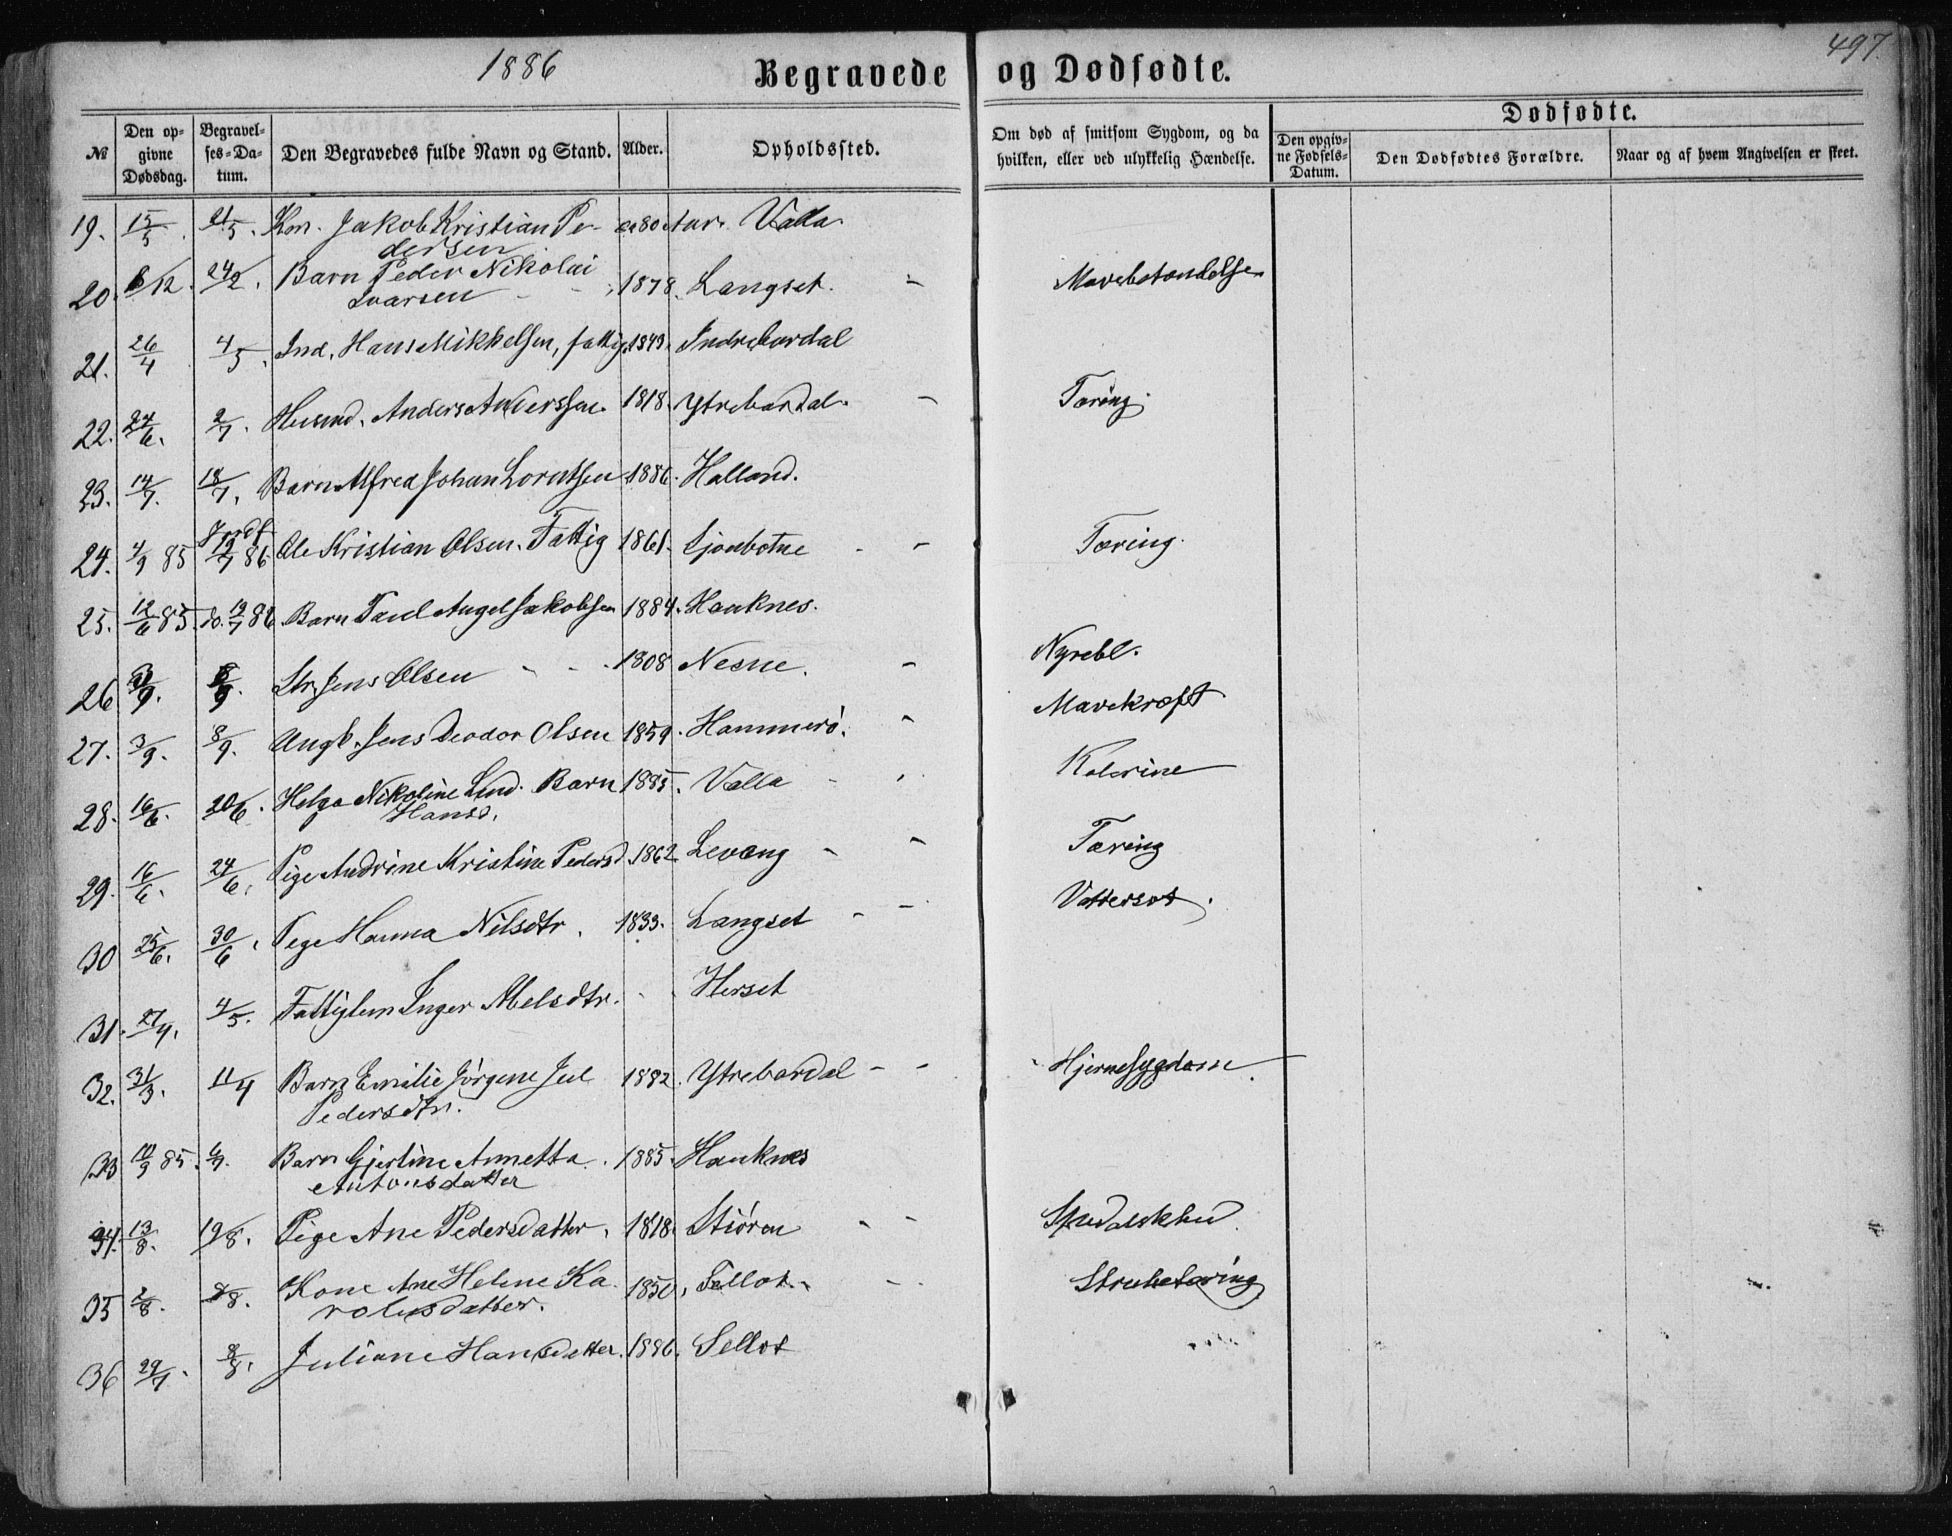 1886
Begravede og Dødfødte.
497.
№
Den opgivne Dødsdag.
Begravelses-Datum.
Den Begravedes fulde Navn og Stand.
Alder.
Opholdssted.
Om død af smitsom Sygdom, og da hvilken, eller ved ulykkelig Hændelse.
Dødfødte.
Den opgivne Fødsels-Datum.
Den Dødfødtes Forældre.
Naar og af hvem Angivelsen er skeet.
19. 15/5. 21/5. Kon. Jakob Kristian Pe- ca 80 Aar. Valla
dersen
20. 6/12. 24/2. Barn Peder Nikolai 1878. Langset. Mavebetændelse
Ivarsen
21. 26/4 4/5. Ind. Hans Mikkelsen, fattig. 1849. Indrebardal
22. 24/6. 2/7. Husmd. Anders Anderssen. 1818. Ytrebardal. Tæring.
23. 14/7. 18/7. Barn Alfred Johan Lorntsen 1886. Halland.
24. 4/9 85 Jordf. 12/7 86 Ole Kristian Olsen. Fattig 1861. Sjonbotne Tæring.
25. 12/6 85. do. 12/7 86. Barn Paul Angel Jakobsen 1884. Hauknes.
26 9. 8/9. Str. Jens Olsen 1808 Nesne. Nyrebl.
27. 3/9. 8/9. Ungk. Jens Deodor Olsen 1859. Hammerø. Mavekræft
28. 16/6. 20/6. Helga Nikoline Lind. Barn 1885. Valla Kolerine
Hansd.
29. 16/6. 24/6. Pige Andrine Kristine Pedersd. 1862 Levang Tæring
30 25/6. 30/6. Pige Hanna Nilsdtr. 1833. Langset Vattersot.
31. 27/4. 4/5. Fattiglem Inger Abelsdtr. Herset
32. 31/3. 11/4 Barn Emilie Jørgene Jul 1882. Ytrebardal Hjernesygdom.
Pedersdtr.
33 10/9 85. Barn Gjertine Annetta 1885. Hauknes
Antonsdatter
34. 13/8. 19/8. Pige Ane Pedersdatter. 1818. Stiøren Spedalskhed.
35 2/8. 8/8. Kone Ane Helene Ka 1850. Sellot. Strubetæring
rolusdatter.
36 29/7. 8/8. Juliane Hansdatter. 1886. Sellot